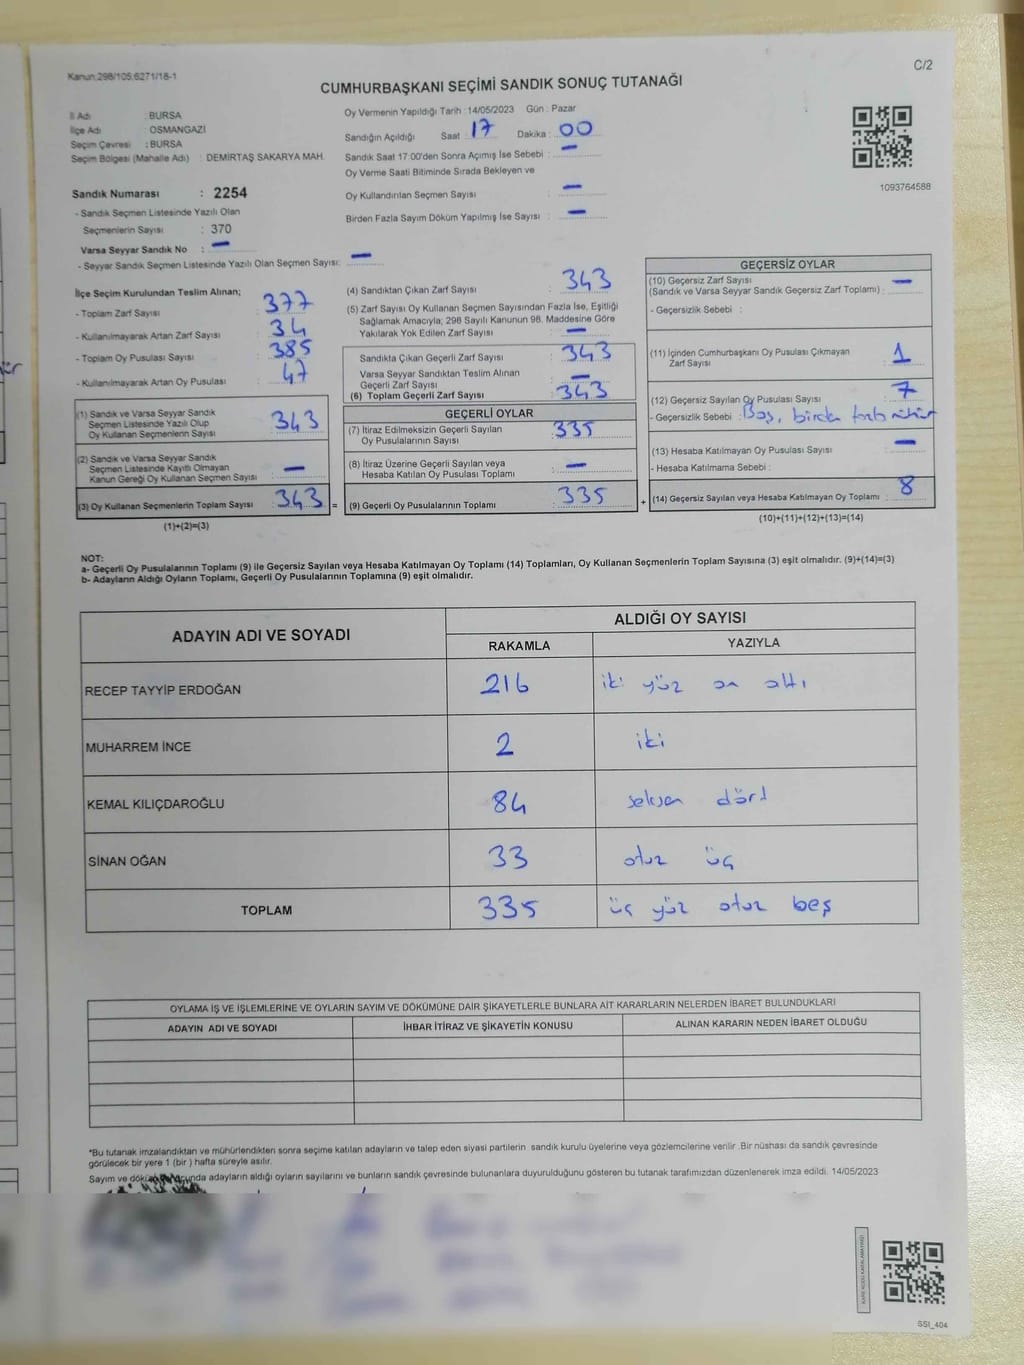 Kanun:298/105,6271/18-1
C/2
CUMHURBAŞKANI SEÇİMİ SANDIK SONUÇ TUTANAĞI
İl Adı : BURSA
İlçe Adı : OSMANGAZİ
Seçim Çevresi : BURSA
Seçim Bölgesi (Mahalle Adı) : DEMİRTAŞ SAKARYA MAH.
Sandık Numarası : 2254
- Sandık Seçmen Listesinde Yazılı Olan
Seçmenlerin Sayısı : 370
Varsa Seyyar Sandık No : —
- Seyyar Sandık Seçmen Listesinde Yazılı Olan Seçmen Sayısı: —
Oy Vermenin Yapıldığı Tarih : 14/05/2023 Gün : Pazar
Sandığın Açıldığı Saat : 17 Dakika : 00
Sandık Saat 17:00'den Sonra Açımış İse Sebebi : —
Oy Verme Saati Bitiminde Sırada Bekleyen ve
Oy Kullandırılan Seçmen Sayısı : —
Birden Fazla Sayım Döküm Yapılmış İse Sayısı : —
1093764588
İlçe Seçim Kurulundan Teslim Alınan;
- Toplam Zarf Sayısı : 377
- Kullanılmayarak Artan Zarf Sayısı : 34
- Toplam Oy Pusulası Sayısı : 385
- Kullanılmayarak Artan Oy Pusulası : 47
(1) Sandık ve Varsa Seyyar Sandık
Seçmen Listesinde Yazılı Olup
Oy Kullanan Seçmenlerin Sayısı : 343
(2) Sandık ve Varsa Seyyar Sandık
Seçmen Listesinde Kayıtlı Olmayan
Kanun Gereği Oy Kullanan Seçmen Sayısı : —
(3) Oy Kullanan Seçmenlerin Toplam Sayısı : 343 =
(1)+(2)=(3)
(4) Sandıktan Çıkan Zarf Sayısı : 343
(5) Zarf Sayısı Oy Kullanan Seçmen Sayısından Fazla İse, Eşitliği
Sağlamak Amacıyla; 298 Sayılı Kanunun 98. Maddesine Göre
Yakılarak Yok Edilen Zarf Sayısı : —
Sandıkta Çıkan Geçerli Zarf Sayısı : 343
Varsa Seyyar Sandıktan Teslim Alınan
Geçerli Zarf Sayısı : —
(6) Toplam Geçerli Zarf Sayısı : 343
GEÇERLİ OYLAR
(7) İtiraz Edilmeksizin Geçerli Sayılan
Oy Pusulalarının Sayısı : 335
(8) İtiraz Üzerine Geçerli Sayılan veya
Hesaba Katılan Oy Pusulası Toplamı : —
(9) Geçerli Oy Pusulalarının Toplamı : 335 +
GEÇERSİZ OYLAR
(10) Geçersiz Zarf Sayısı
(Sandık ve Varsa Seyyar Sandık Geçersiz Zarf Toplamı) : —
- Geçersizlik Sebebi :
(11) İçinden Cumhurbaşkanı Oy Pusulası Çıkmayan
Zarf Sayısı : 1
(12) Geçersiz Sayılan Oy Pusulası Sayısı : 7
- Geçersizlik Sebebi : Boş, birden fazla mühür
(13) Hesaba Katılmayan Oy Pusulası Sayısı : —
- Hesaba Katılmama Sebebi :
(14) Geçersiz Sayılan veya Hesaba Katılmayan Oy Toplamı : 8
(10)+(11)+(12)+(13)=(14)
NOT:
a- Geçerli Oy Pusulalarının Toplamı (9) ile Geçersiz Sayılan veya Hesaba Katılmayan Oy Toplamı (14) Toplamları, Oy Kullanan Seçmenlerin Toplam Sayısına (3) eşit olmalıdır. (9)+(14)=(3)
b- Adayların Aldığı Oyların Toplamı, Geçerli Oy Pusulalarının Toplamına (9) eşit olmalıdır.
ADAYIN ADI VE SOYADI
ALDIĞI OY SAYISI
RAKAMLA YAZIYLA
RECEP TAYYİP ERDOĞAN 216 iki yüz on altı
MUHARREM İNCE 2 iki
KEMAL KILIÇDAROĞLU 84 seksen dört
SİNAN OĞAN 33 otuz üç
TOPLAM 335 üç yüz otuz beş
OYLAMA İŞ VE İŞLEMLERİNE VE OYLARIN SAYIM VE DÖKÜMÜNE DAİR ŞİKAYETLERLE BUNLARA AİT KARARLARIN NELERDEN İBARET BULUNDUKLARI
ADAYIN ADI VE SOYADI İHBAR İTİRAZ VE ŞİKAYETİN KONUSU ALINAN KARARIN NEDEN İBARET OLDUĞU
*Bu tutanak imzalandıktan ve mühürlendikten sonra seçime katılan adayların ve talep eden siyasi partilerin sandık kurulu üyelerine veya gözlemcilerine verilir. Bir nüshası da sandık çevresinde
görülecek bir yere 1 (bir ) hafta süreyle asılır.
Sayım ve dökümü sonucunda adayların aldığı oyların sayılarını ve bunların sandık çevresinde bulunanlara duyurulduğunu gösteren bu tutanak tarafımızdan düzenlenerek imza edildi. 14/05/2023
SSI_404